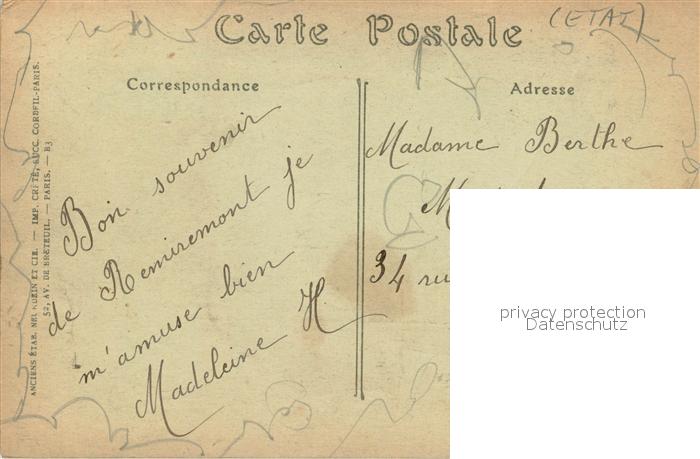 Carte Postale (ETAT)
Correspondance
Adresse
Bon souvenir
de Remiremont je
m'amuse bien
Madeleine H.
Madame Berthe
34 ru
ANCIENS ÉTAB. NEURDEIN ET CIE. — IMP. CRÉTÉ, SUCC. CORBEIL-PARIS.
52, AV. DE BRETEUIL. — PARIS. — B3
privacy protection
Datenschutz